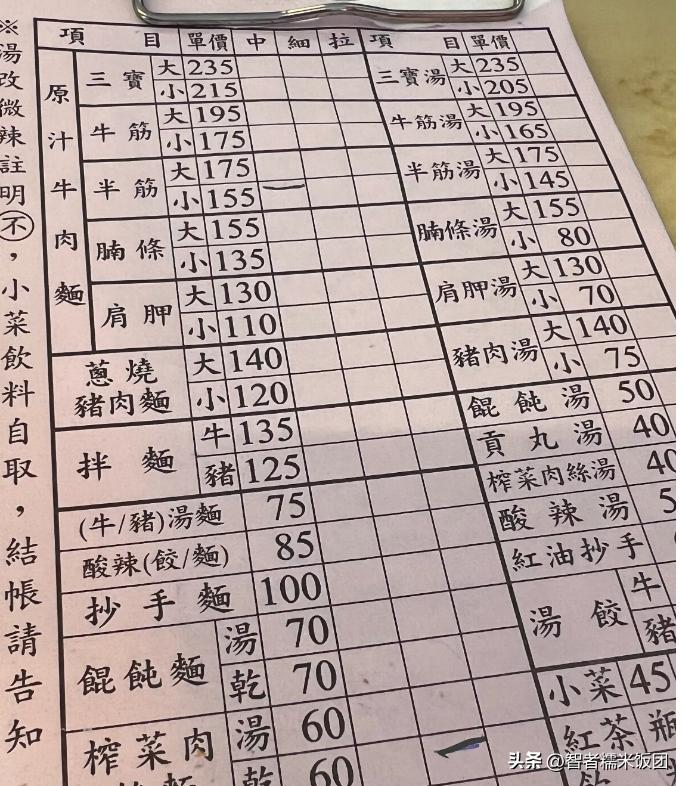 ※湯改微辣註明不，小菜飲料自取，結帳請告知
項 目 單價 中 細 拉 項 目 單價
原汁牛肉麵
三寶 大 235
小 215
牛筋 大 195
小 175
半筋 大 175
小 155
腩條 大 155
小 135
肩胛 大 130
小 110
蔥燒豬肉麵 大 140
小 120
拌麵 牛 135
豬 125
(牛/豬)湯麵 75
酸辣(餃/麵) 85
抄手麵 100
餛飩麵 湯 70
乾 70
榨菜肉 湯 60
乾 60
三寶湯 大 235
小 205
牛筋湯 大 195
小 165
半筋湯 大 175
小 145
腩條湯 大 155
小 80
肩胛湯 大 130
小 70
豬肉湯 大 140
小 75
餛飩湯 50
貢丸湯 40
榨菜肉絲湯 40
酸辣湯
紅油抄手
湯餃 牛
豬
小菜 45
紅茶 瓶
头条 @智者糯米饭团